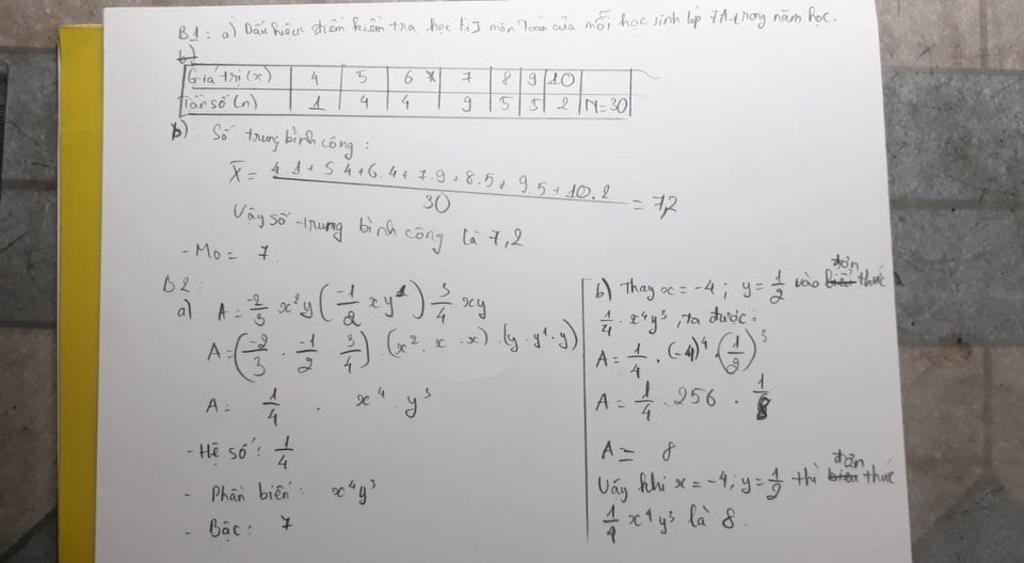 B1: a) Dấu hiệu: điểm kiểm tra học kì I môn Toán của mỗi học sinh lớp 7A trong năm học.
b)
Giá trị (x) 4 5 6 7 8 9 10
Tần số (n) 1 4 4 9 5 5 2 N=30
b) Số trung bình cộng:
X̄ = (4.1+5.4+6.4+7.9+8.5+9.5+10.2)/30 = 7,2
Vậy số trung bình cộng là 7,2
- Mo = 7.
B2:
a) A = -2/3 x²y (-1/2 xy¹) 3/4 xy
A = (-2/3 . -1/2 . 3/4) . (x² . x . x) . (y . y¹ . y)
A = 1/4 . x⁴ . y³
- Hệ số: 1/4
- Phần biến: x⁴y³
- Bậc: 7
b) Thay x = -4; y = 1/2 vào đơn thức
1/4 . x⁴y³, ta được:
A = 1/4 . (-4)⁴ . (1/2)³
A = 1/4 . 256 . 1/8
A = 8
Vậy khi x = -4; y = 1/2 thì đơn thức
1/4 x⁴y³ là 8.